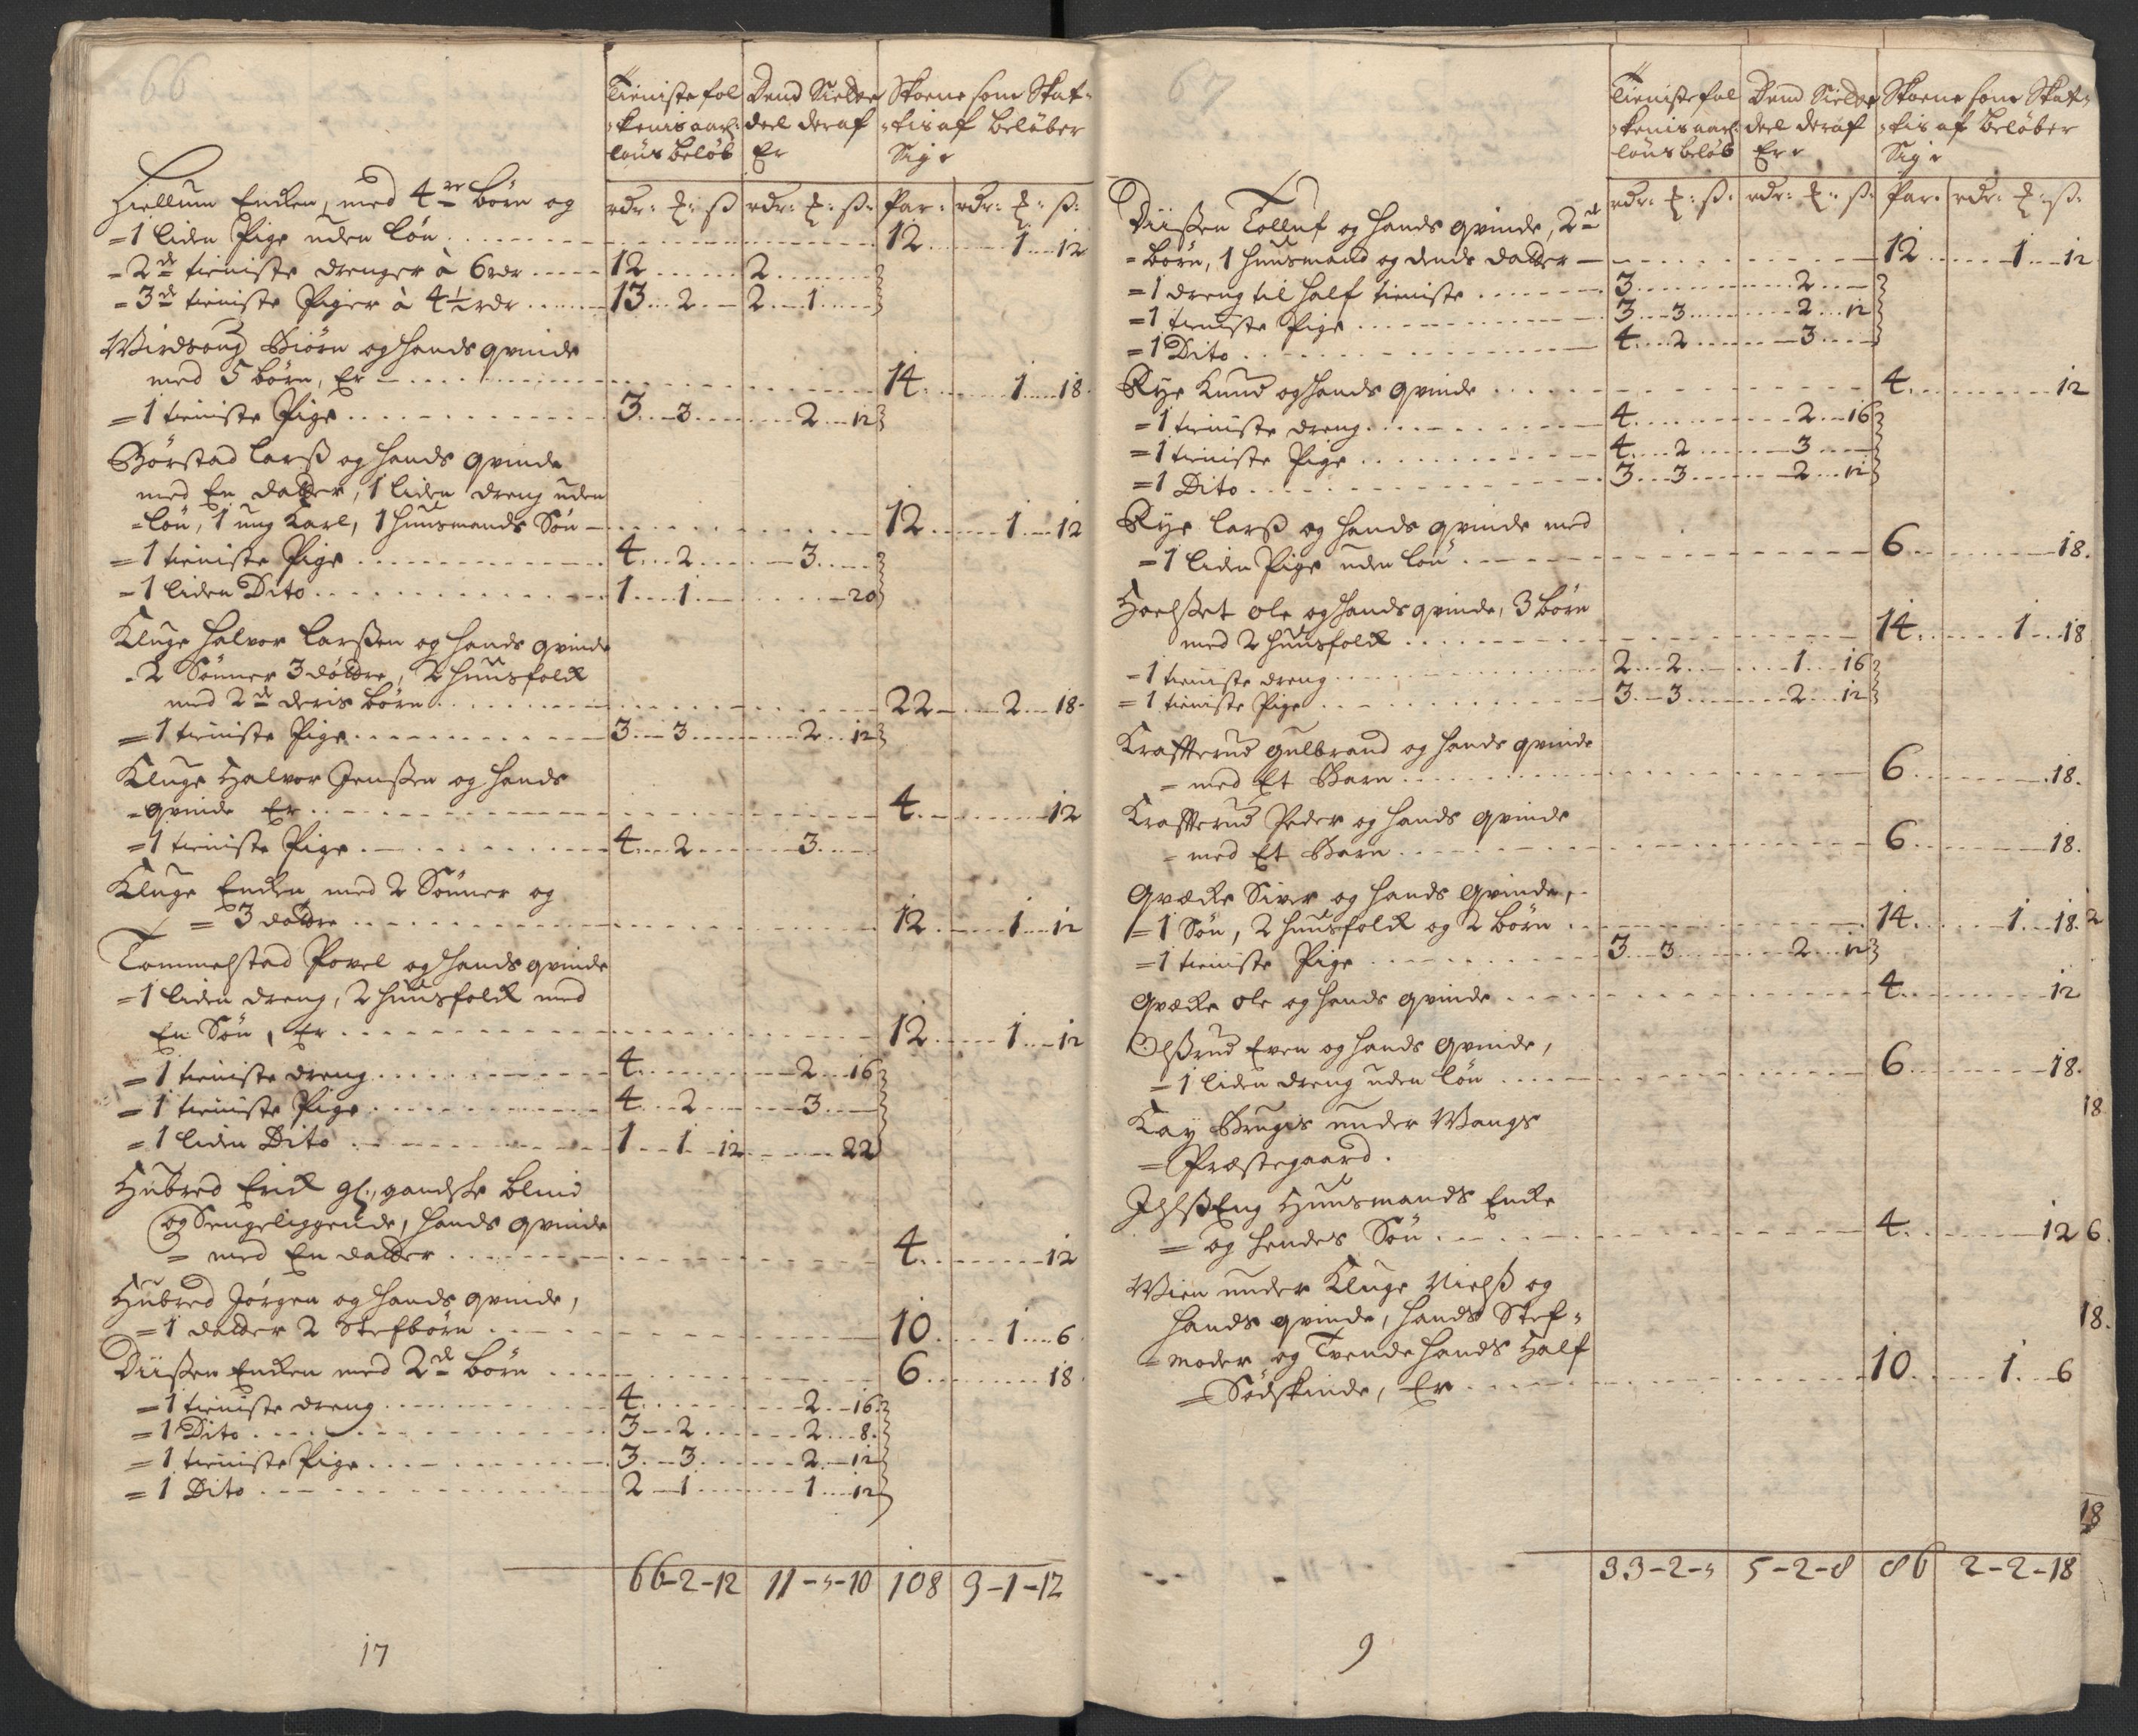 66
Tieniste fol Dend Siette Skoene som Skat-
-kenis aarl: deel deraf -tis af beløber
løns beløb Er Sig r
rdr: ß rdr: ß: Par: rdr: ß:
Hiellum Encken, med 4re børn og
=1 liden Pige uden løn 12 1 12
=2de tieniste drenger à 6rdr 12 2
=3de tieniste Piger à 4½ rdr 13 2 2 1
Wirdsong Biörn og hands qvinde
med 5 børn, Er 14 1 18
=1 tieniste Pige 3 3 2 12
Börstad Larß og hands qvinde
med En datter, 1 liden dreng uden
-løn, 1 ung Karl, 1 huusmands Søn 12 1 12
=1 tieniste Pige 4 2 3
=1 liden Dito 1 1 20
Kluge Halvor Larßen og hands qvinde
-2 Sønner 3 døttre, 2 huusfolck
med 2de deris børn 22 2 18
=1 tieniste Pige 3 3 2 12
Kluge Halvor Jenßen og hands
-qvinde Er 4 12
=1 tieniste Pige 4 2 3
Kluge Encken med 2 Sønner og
=3 døttre 12 1 12
Tommelstad Povel og hands qvinde
=1 liden dreng, 2 huusfolck med
En Søn, Er 12 1 12
=1 tieniste dreng 4 2 16
=1 tieniste Pige 4 2 3
=1 liden Dito 1 1 12 22
Hubred Erick gl:, gandske blind
og Sengeliggende, hands qvinde
= med En datter 4 12
Hubred Jørgen og hands qvinde,
=1 datter 2 Stefbørn 10 1 6
Diißen Encken med 2de børn 6 18
=1 tieniste dreng 4 2 16
=1 Dito 3 2 2 8
=1 tieniste Pige 3 3 2 12
=1 Dito 2 1 1 12
66-2-12 11-3-10 108 9-1-12
17
67
Tieniste fol Dend Siette Skoene som Skat-
-kenis aarl: deel deraf -tis af beløber
løns beløb Er Sig r
rdr: ß: rdr: ß: Par: rdr: ß:
Diißen Tolluf og hands qvinde, 2de
-børn, 1 huusmand og dends datter 12 1 12
=1 dreng til half tieniste 3 2
=1 tieniste Pige 3 3 2 12
=1 Dito 4 2 3
Rye Knud og hands qvinde 4 12
=1 tieniste dreng 4 2 16
=1 tieniste Pige 4 2 3
=1 Dito 3 3 2 12
Rye Larß og hands qvinde med
=1 liden Pige uden løn 6 18
Hoelßet Ole og hands qvinde, 3 børn
med 2 huusfolck 14 1 18
-1 tieniste dreng 2 2 1 16
=1 tieniste Pige 3 3 2 12
Krafterud Gulbrand og hands qvinde
= med Et Barn 6 18
Krafterud Peder og hands qvinde
= med Et Barn 6 18
Qvæcke Siver og hands qvinde,
=1 Søn, 2 huusfolck og 2 børn 14 1 18
=1 tieniste Pige 3 3 2 12
Qvæcke Ole og hands qvinde 4 12
Olßrud Even og hands qvinde,
=1 liden dreng uden løn 6 18
Kay Brugis under Wangs
=Præstegaard.
Huusmands Encke
= og hendes Søn 4 12
Wien under Kluge Nielß og
hands qvinde, hands Stef-
=moder og Tvende hands Half
=Södskinde, Er 10 1 6
33-2-3 5-2-8 86 2-2-18
9